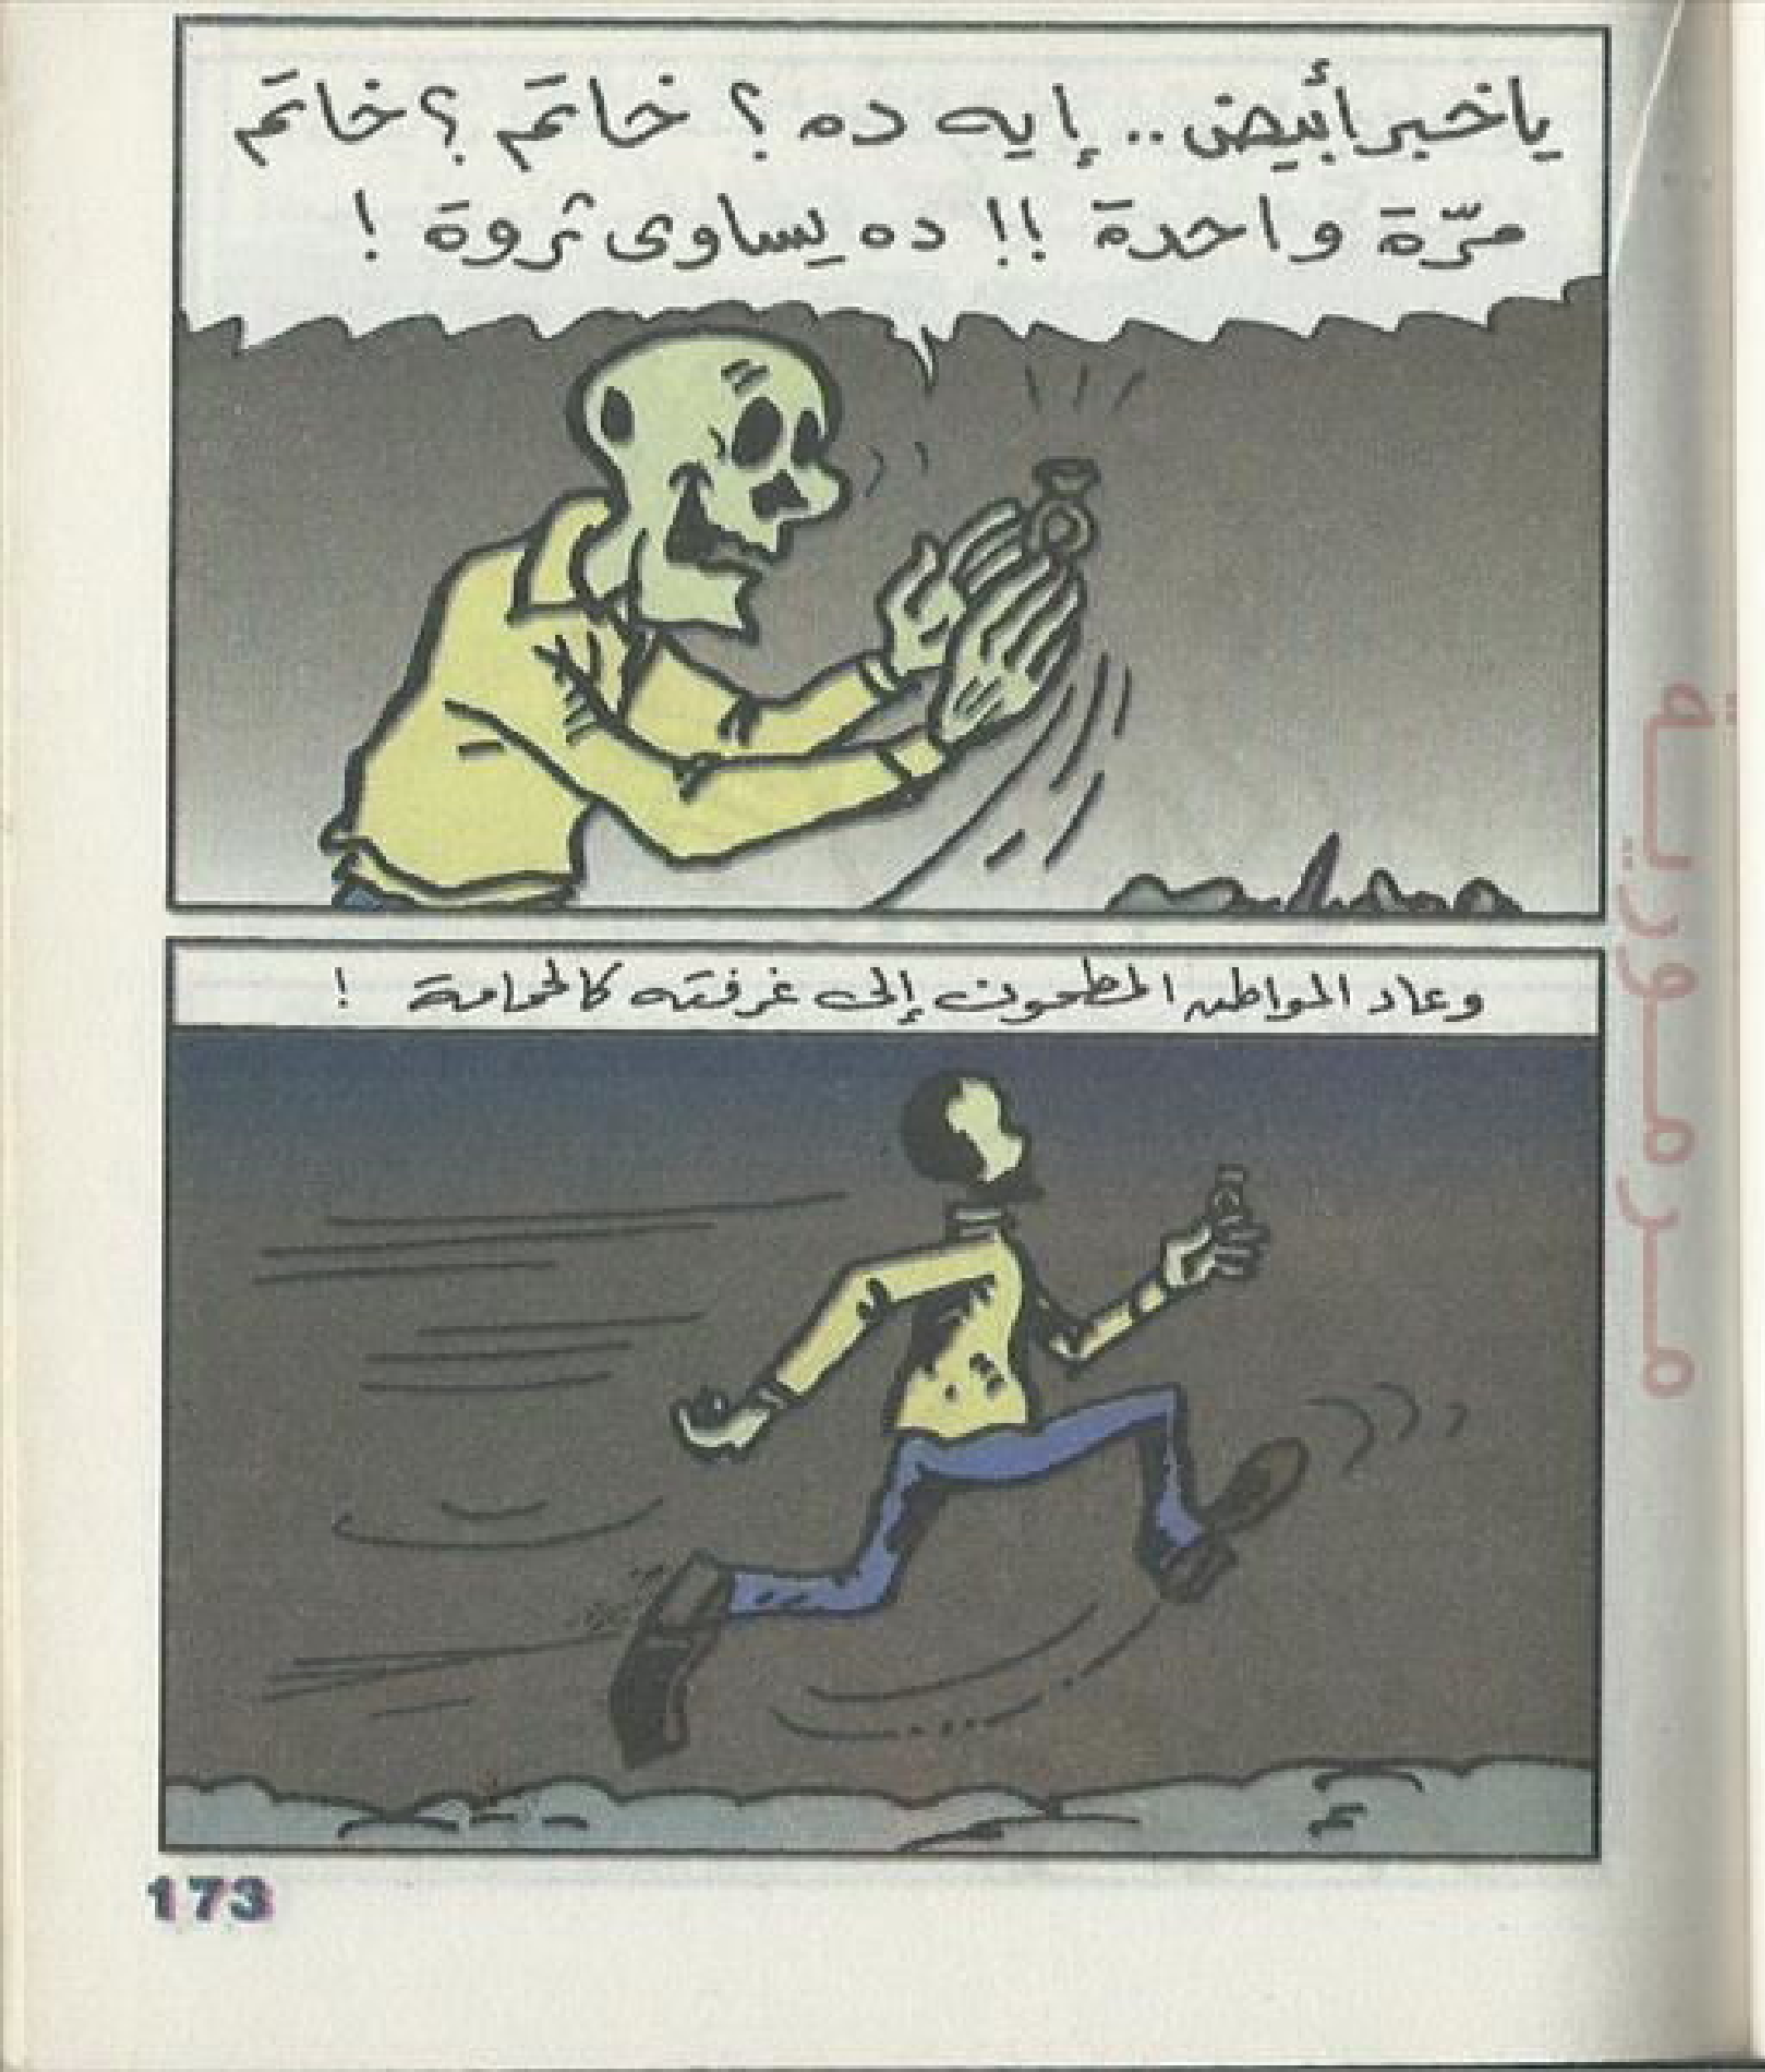 ياخبر أبيض.. إيه ده؟ خاتم؟ خاتم
مرّة واحدة!! ده يساوى ثروة!
وعاد المواطن المطحون إلى غرفته كالحمامة!
173
مرمورية